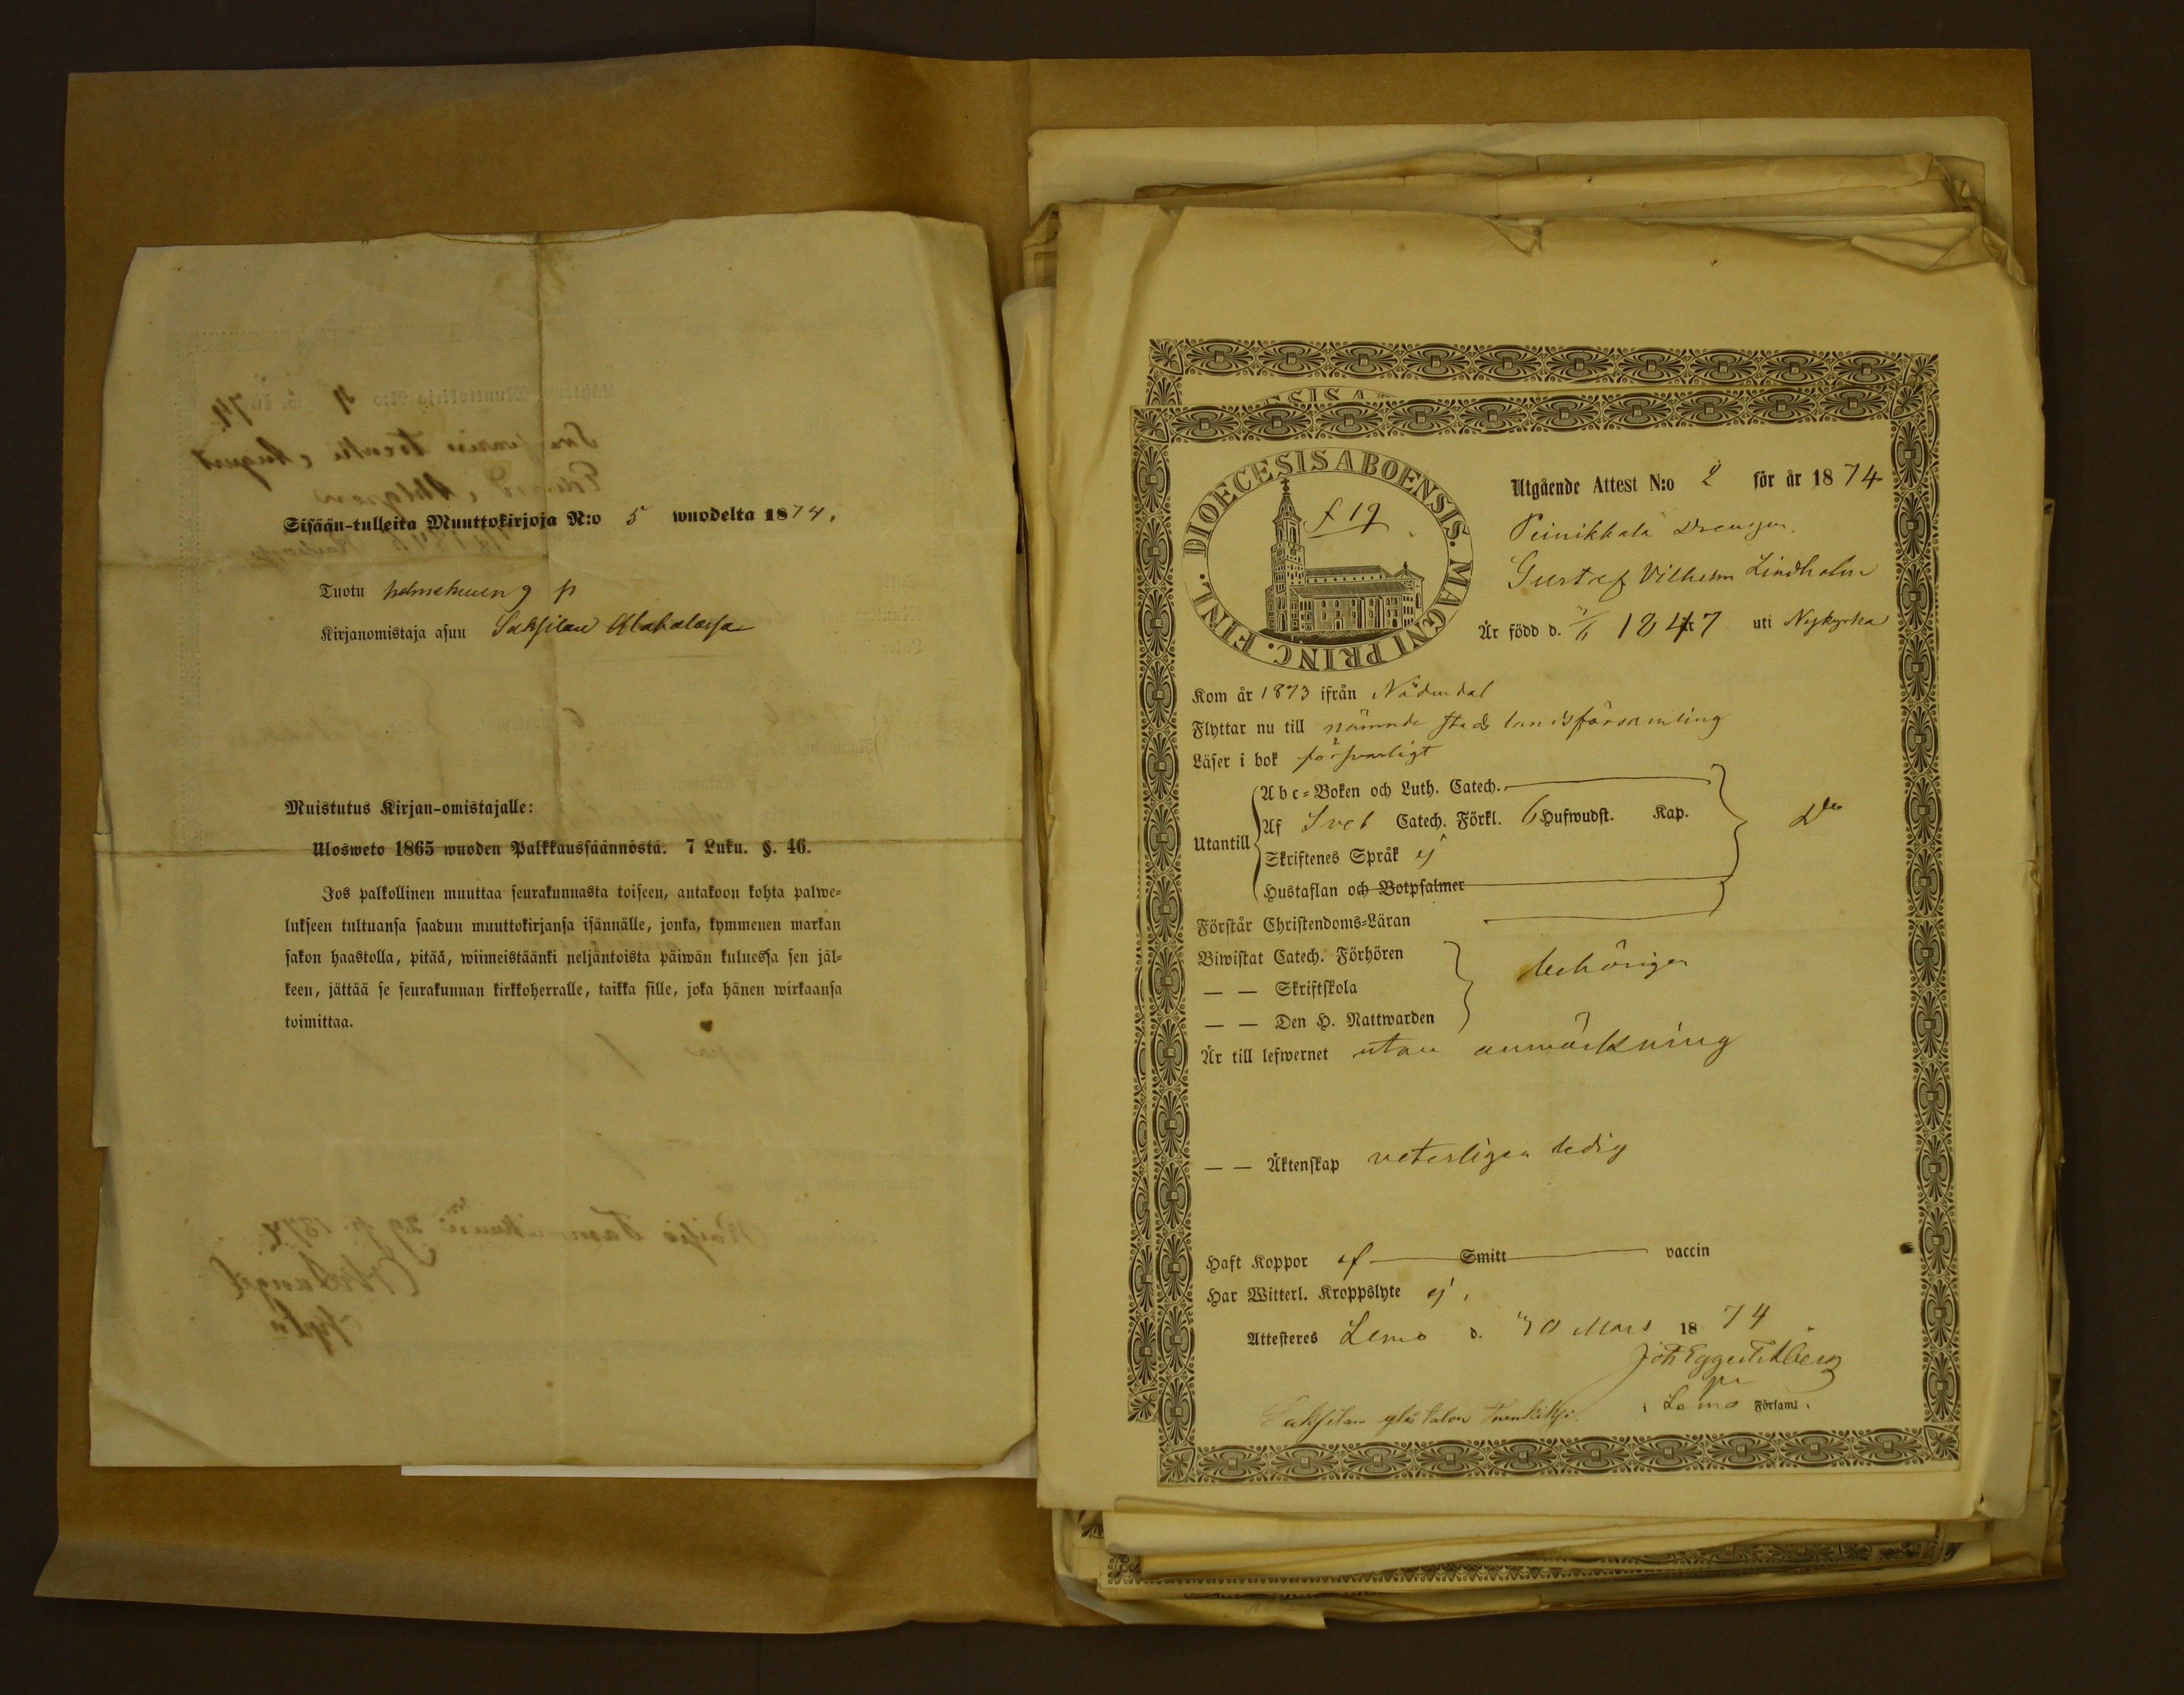 Sisään-tulleita Muuttokirjoja N:o 5 wuodelta 1874.
Tuotu helmekuun 9 p
Kirjanomistaja asuu Saksilan Alatalossa
Muistutus Kirjan-omistajalle:
Ulosweto 1865 wuoden Palkkaussäännöstä. 7 Luku. §. 46.
Jos palkollinen muuttaa seurakunnasta toiseen, antakoon kohta palwe-
lukseen tultuansa saadun muuttokirjansa isännälle, jonka, kymmenen markan
sakon haastolla, pitää, wiimeistäänki neljäntoista päiwän kuluessa sen jäl-
keen, jättää se seurakunnan kirkkoherralle, taikka sille, joka hänen wirkaansa
toimittaa.
DIOECESIS ABOENSIS. MAGNI PRINC. FINL.
f 19
Utgående Attest N:o 2 för år 1874
Peinikkala Drengen
Gustaf Vilhelm Lindholm
Är född d. 1847 uti Nykyrka
Kom år 1873 ifrån Nådendal
Flyttar nu till nämnde stads landsförsamling
Läser i bok försvarligt
Utantill
Abc-Boken och Luth. Catech.
Af Sveb Catech. Förkl. 6 Hufwudst. Kap.
Skriftenes Språk ej
Hustaflan och Botpsalmer
Do
Förstår Christendoms-Läran
Biwistat Catech. Förhören
— — Skriftskola
— — Den H. Nattwarden
behörigen
Är till lefwernet utan anmärkning
— — Äktenskap veterligen ledig
Haft Koppor af Smitt vaccin
Har Witterl. Kroppslyte ej.
Attesteres Lemo d. 30 Mars 1874.
i Lemo Församl.
Saksilan ylös talon